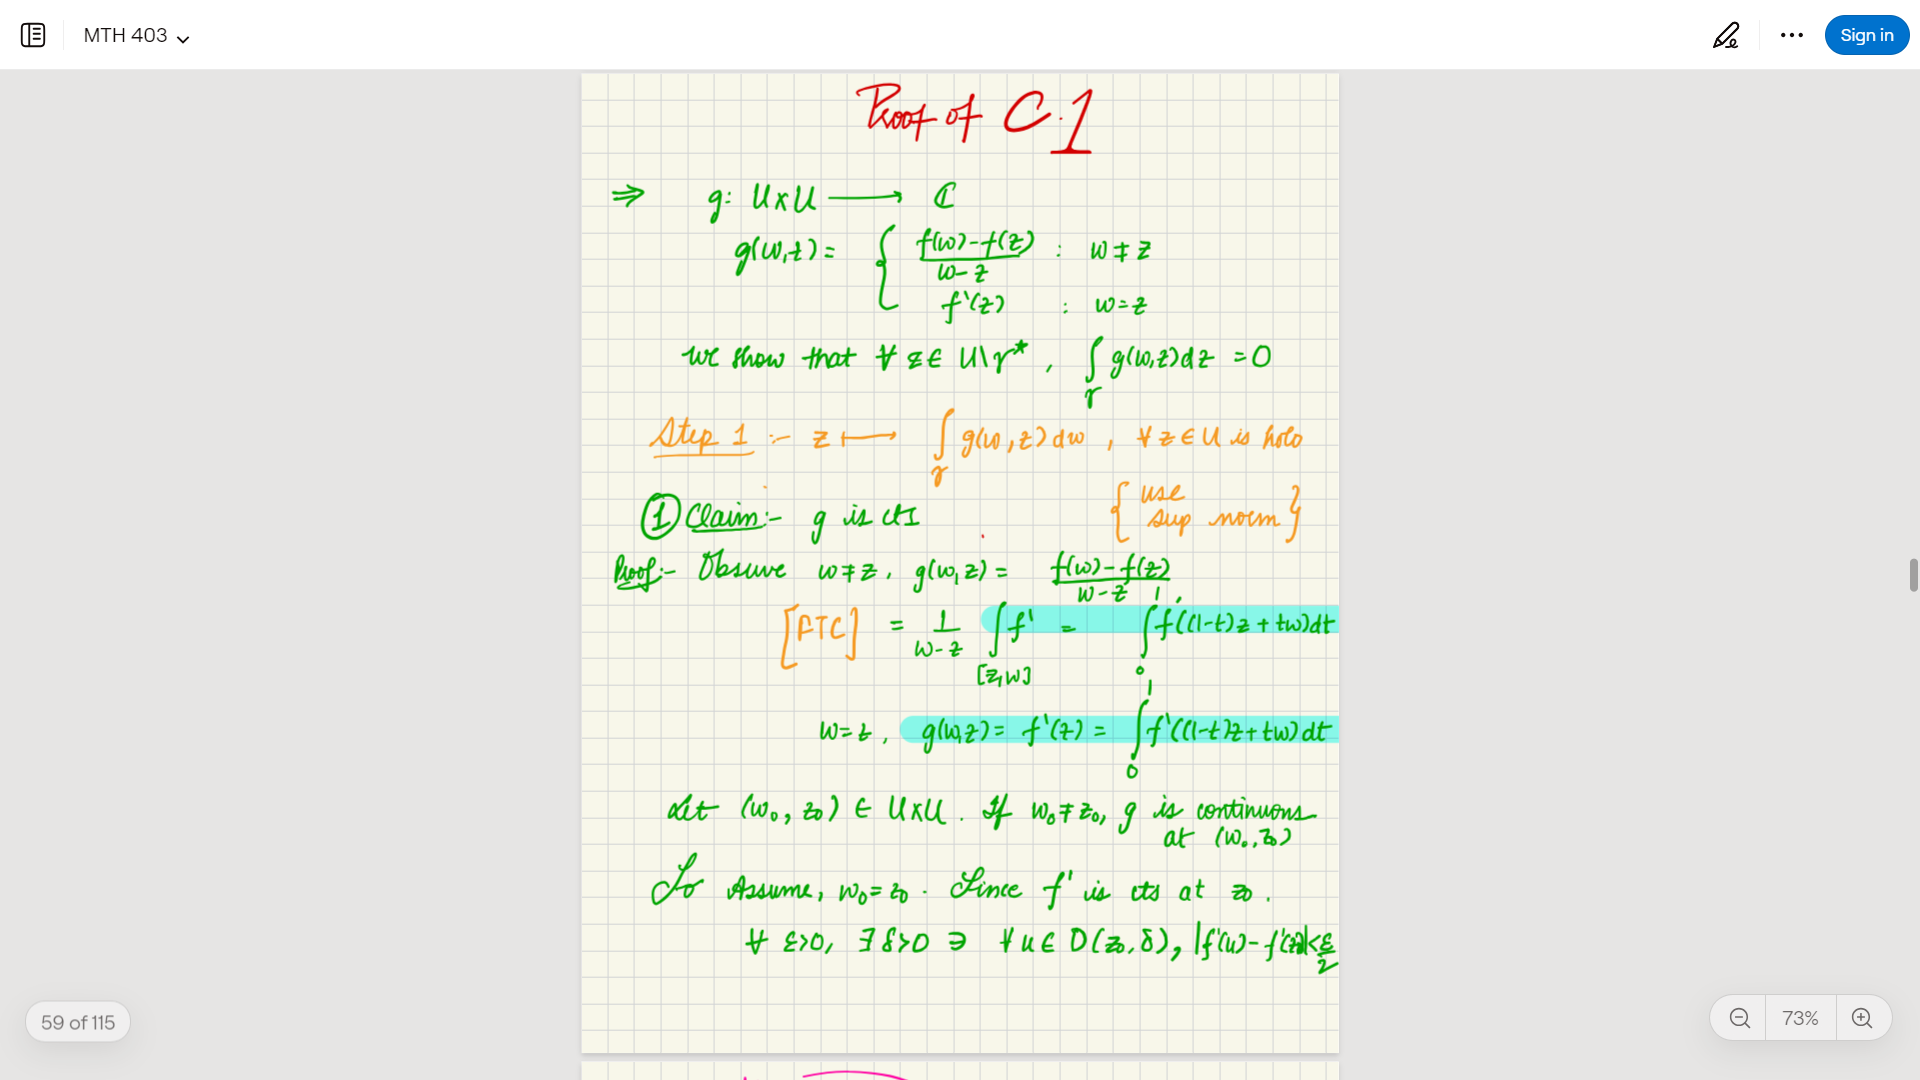 MTH 403
Sign in
Proof of C.1
⇒ g: U×U ⟶ ℂ
g(w,t) = { f(w)-f(z) / w-z : w≠z
f'(z) : w=z
We show that ∀ z∈ U\γ*, ∫_γ g(w,z)dz = 0
Step 1 :- z ⟼ ∫_γ g(w,z)dw , ∀ z∈U is holo
{ use
sup norm }
① Claim:- g is cts
Proof:- Observe w≠z, g(w,z) = f(w)-f(z) / w-z
[FTC] = 1/w-z ∫_[z,w] f' = ∫_0^1 f'((1-t)z + tw)dt
w=z, g(w,z) = f'(z) = ∫_0^1 f'((1-t)z+tw)dt
Let (w₀, z₀) ∈ U×U. If w₀≠z₀, g is continuous
at (w₀,z₀)
So Assume, w₀=z₀. Since f' is cts at z₀.
∀ ε>0, ∃ δ>0 ∋ ∀ u∈ D(z₀,δ), |f'(u)-f'(z₀)|<ε/2
59 of 115
73%